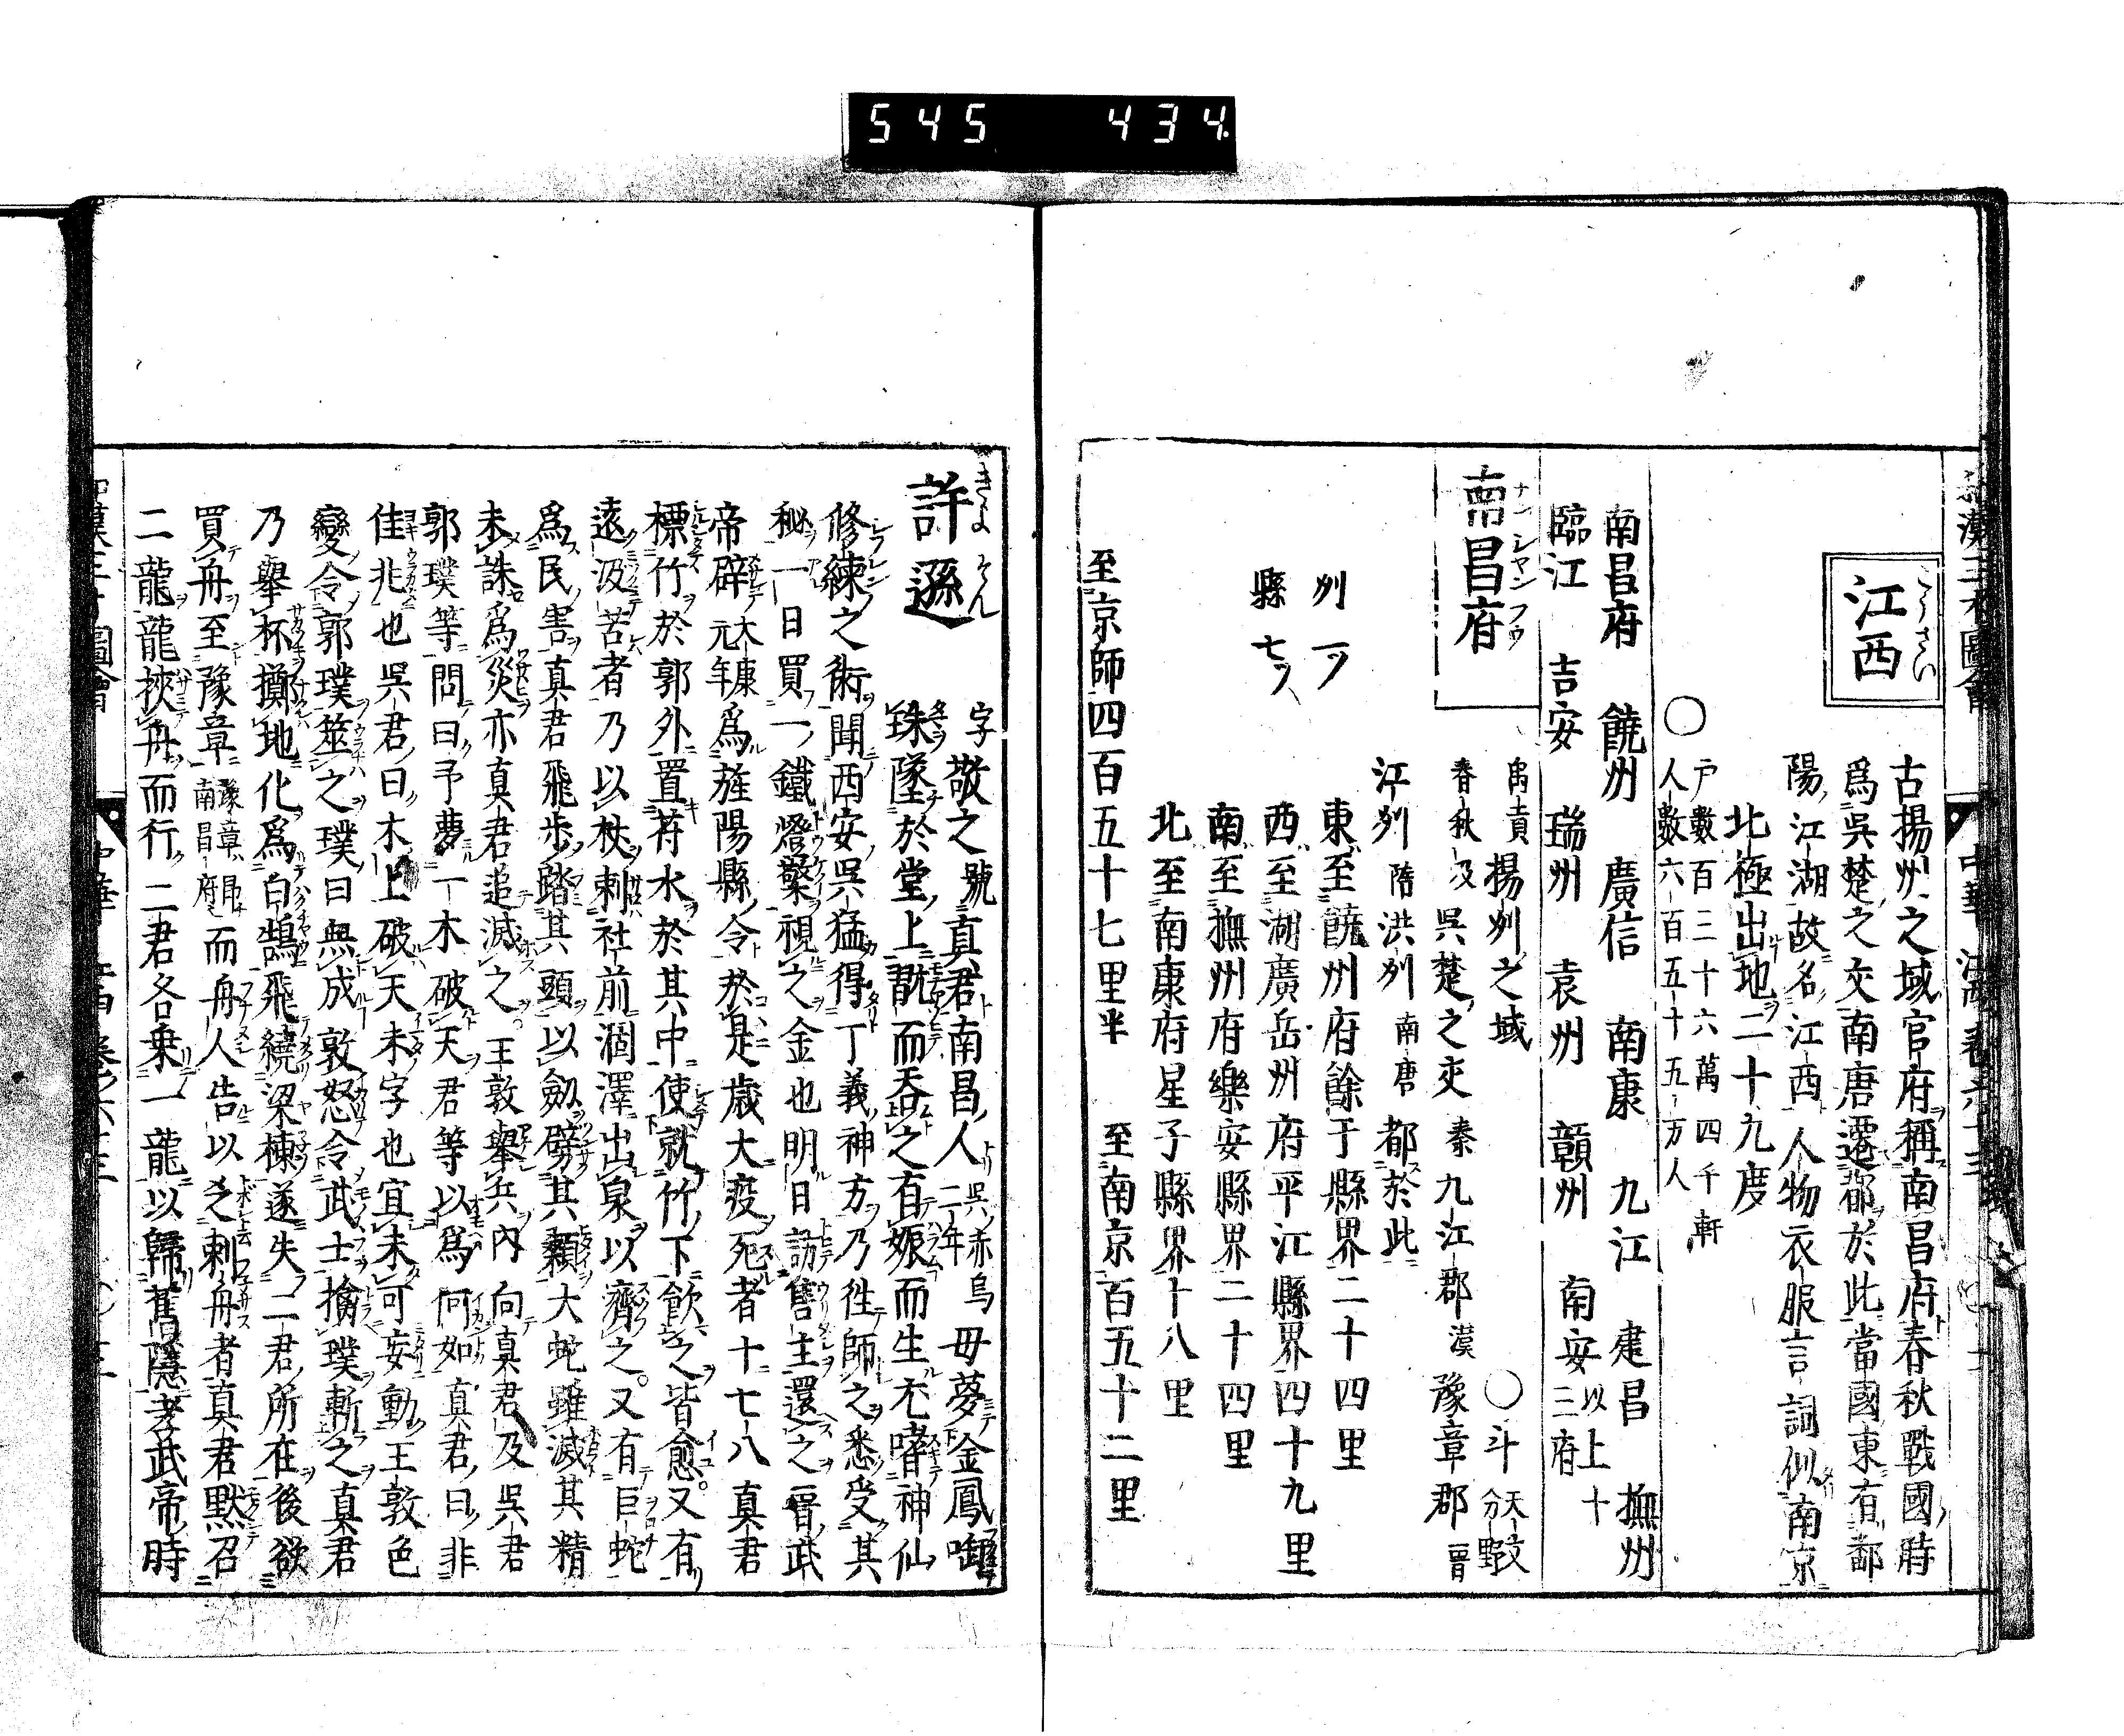 545 434
江西
古揚州之域官府稱南昌府春秋戰國時
爲呉楚之交南唐遷都於此當國東有鄱
陽江湖故名江西人物衣服言詞似南京
北極出地二十九度
○戸數百三十六萬四千軒
人數六百五十五万人
南昌府 饒州 廣信 南康 九江 建昌 撫州
臨江 吉安 瑞州 袁州 贛州 南安 以上十三府
南昌府
禹貢揚州之域 ○斗 天文分野
春秋及呉楚之交 秦九江郡 漢豫章郡 晋
江州 隋洪州 南唐都於此
州一ツ 東至饒州府餘于縣界二十四里
縣七ツ 西至湖廣岳州府平江縣界四十九里
南至撫州府樂安縣界二十四里
北至南康府星子縣界十八里
至京師四百五十七里半 至南京百五十二里
許遜
字敬之號真君南昌人呉赤烏二年母夢金鳳啣
珠墜於堂上翫而吞之有娠而生尤嗜神仙
修練之術聞西安呉猛得丁義神方乃徃師之悉受其
秘一日買一鐵燈檠視之金也明日訪售主還之晋武
帝辟太康元年爲旌陽縣令於是歳大疫死者十七八真君
標竹於郭外置符水於其中使就竹下飲之皆愈。又有
遠汲苦者乃以杖刺社前涸澤出泉以濟之。又有巨蛇
爲民害真君飛歩踏其頭以劔劈其顙大蛇雖滅其精
未誅爲災亦真君追滅之。王敦舉兵内向真君及呉君
郭璞等問曰予夢一木破天君等以爲何如真君曰非
佳兆也呉君曰木上破天未字也宜未可妄動王敦色
變令郭璞筮之璞曰無成敦怒令武士擒璞斬之真君
乃舉杯擲地化爲白鵠飛繞梁棟遂失二君所在後欲
買舟至豫章豫章即南昌府而舟人告以乏刺舟者真君默召
二龍龍挾舟而行二君各乗一龍以歸舊隱孝武帝時